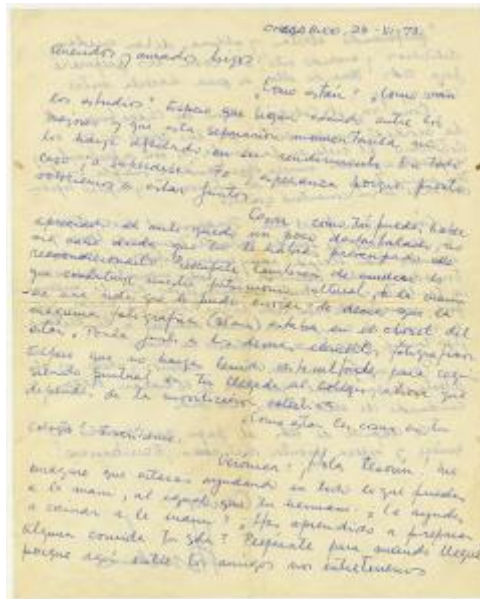 CHACABUCO, 26-XI-73.
queridos y amados hijos:
¿Cómo están? ¿Cómo van
los estudios? Espero que sigan siendo entre los
mejores y que esta separación momentánea no
los haya afectado en su rendimiento. En todo
caso, a superarse. Yo esperanza porque pronto
volveremos a estar juntos.
César: como tú puedes haber
apreciado el auto quedó un poco destartalado, no
me cabe duda que tú te habrás preocupado de
reacondicionarlo
que constituye nuestro patrimonio cultural, a la mamá
se me pude enviar, de decir que la
máquina fotográfica estaba en el closet del
junto a los demás elementos fotográficos
Espero que no hayas tenido para seguir
siendo puntual en tu llegada al colegio, ahora que
dependes de la movilización colectiva.
¿Cómo están las cosas en tu
colegio?
Verónica: ¡Hola tesoro! me
imagino que estarás ayudando en todo lo que puedas
a la mamá, al igual que tu hermano, ¿la ayudas
a cocinar a la mamá? ¿Has aprendido a preparar
alguna comida tú sola? Prepárate para cuando llegue
porque aquí entre los amigos nos entretenemos